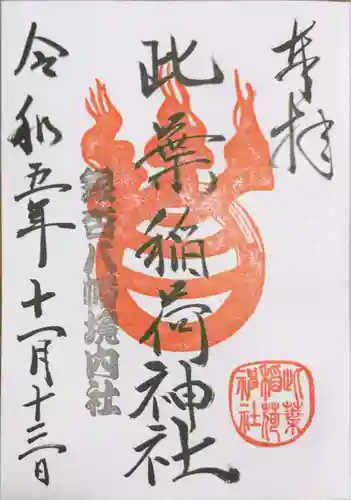 奉拝
此葉稲荷神社
鶴谷八幡境内社
令和五年十一月十三日
此葉
稲荷
神社